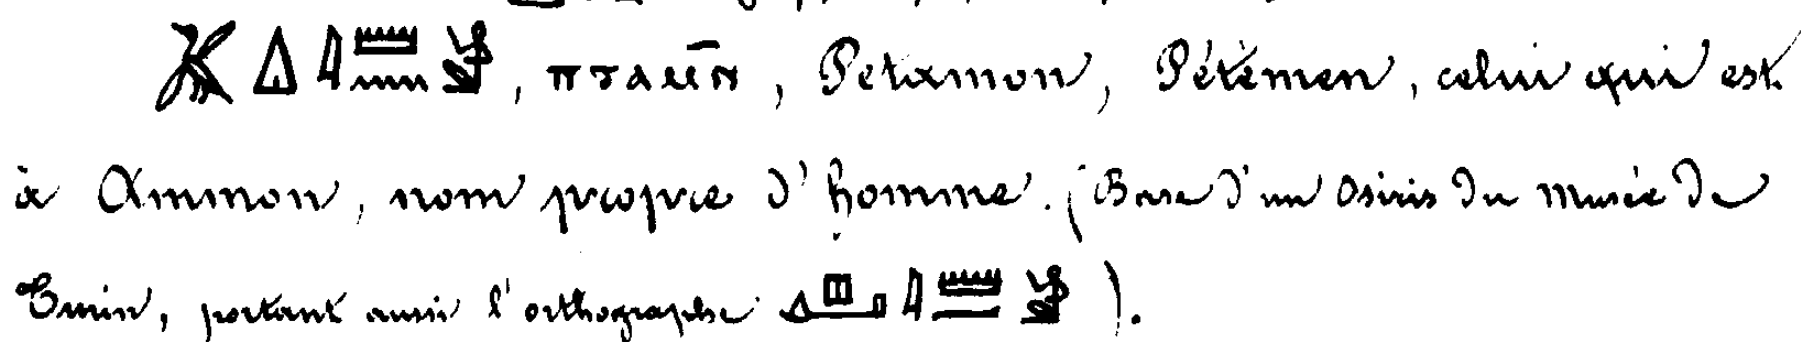 , ⲡⲧⲁⲙⲛ̄, Petamon, Pétèmen, celui qui est
à Ammon, nom propre d'homme. (Base d'un Osiris du Musée de
Turin, portant aussi l'orthographe ).